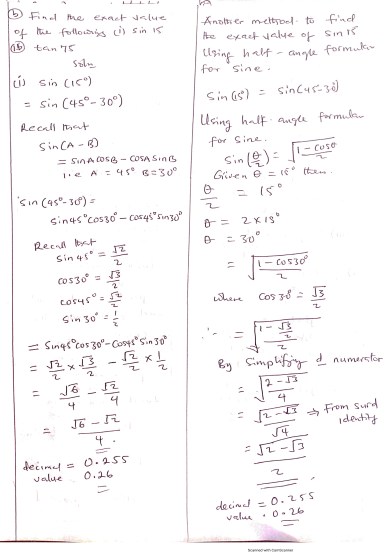 (b) Find the exact value
of the following (i) sin 15
(ii) tan 75
Soln
(i) Sin (15°)
= Sin (45°-30°)
Recall that
Sin(A - B)
= SinA CosB - CosA SinB
i.e A = 45° B=30°
Sin (45°-30°) =
Sin45°Cos30° - Cos45°Sin30°
Recall that
Sin 45° = √2/2
Cos30° = √3/2
Cos45° = √2/2
Sin 30° = 1/2
= Sin45°Cos30° - Cos45°Sin30°
= √2/2 × √3/2 - √2/2 × 1/2
= √6/4 - √2/4
= √6 - √2 / 4.
decimal = 0.255
value 0.26
Another method to find
the exact value of Sin15
Using half-angle formular
for sine.
Sin(15°) = Sin(45-30)
Using half-angle formular
for Sine.
Sin(θ/2) = √(1-Cosθ / 2)
Given θ = 15° then.
θ/2 = 15°
θ = 2×15°
θ = 30°
= √(1-Cos30° / 2)
where Cos30° = √3/2
∴ = √(1 - √3/2 / 2)
By Simplifyig d numerator
= √(2-√3 / 4)
= √2-√3 / √4 ⇒ From surd
Identity
= √2-√3 / 2
decimal = 0.255
value . 0.26
Scanned with CamScanner